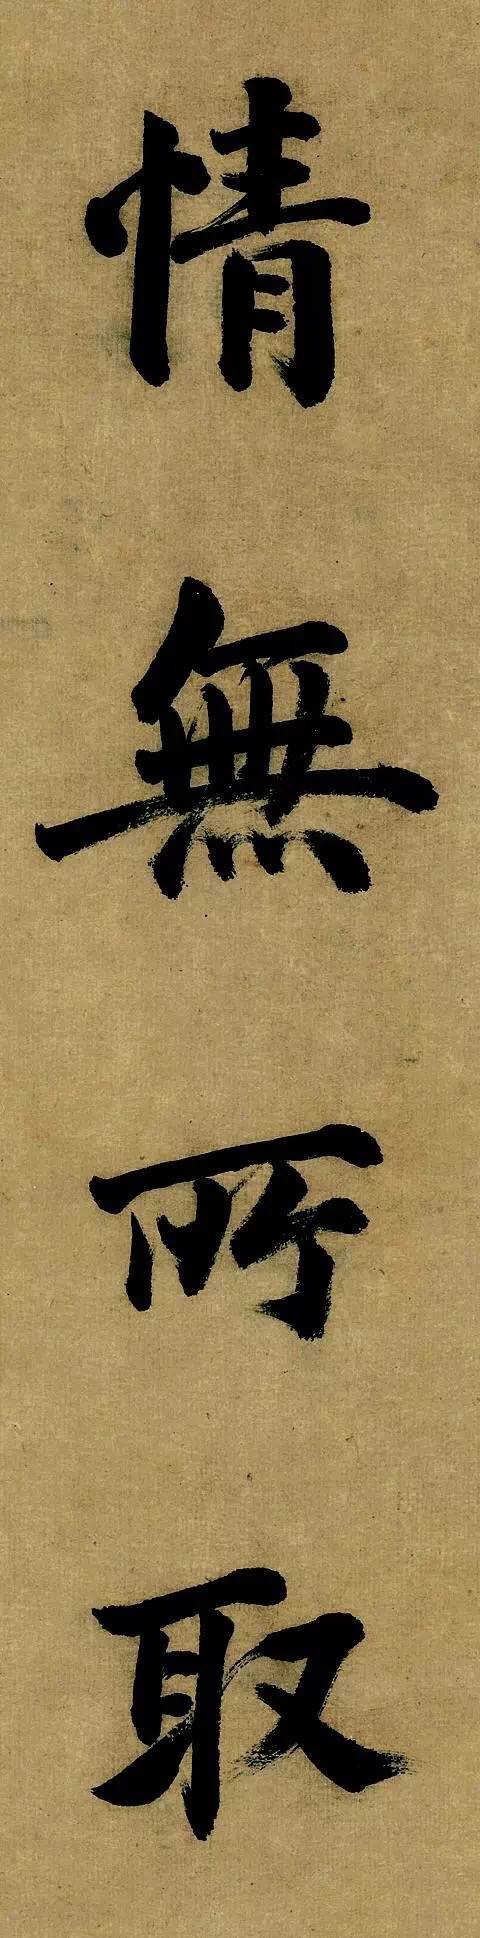 情無所取